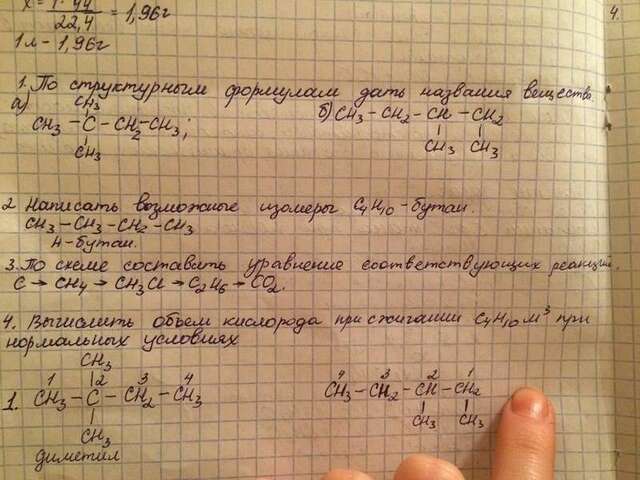 x = 1·44 / 22,4 = 1,96г
4.
1л – 1,96г
1. По структурным формулам дать названия веществ.
а) CH3
CH3 – C – CH2 – CH3;
CH3
б) CH3 – CH2 – CH – CH2
CH3 CH3
2 Написать возможные изомеры C4H10 – бутан.
CH3 – CH3 – CH2 – CH3
Н-бутан.
3. По схеме составить уравнение соответствующих реакций.
C → CH4 → CH3Cl → C2H6 → CO2.
4. Вычислить объем кислорода при сжигании C4H10 м³ при
нормальных условиях
CH3
1 2 3 4
1. CH3 – C – CH2 – CH3
CH3
диметил
4 3 2 1
CH3 – CH2 – CH – CH2
CH3 CH3